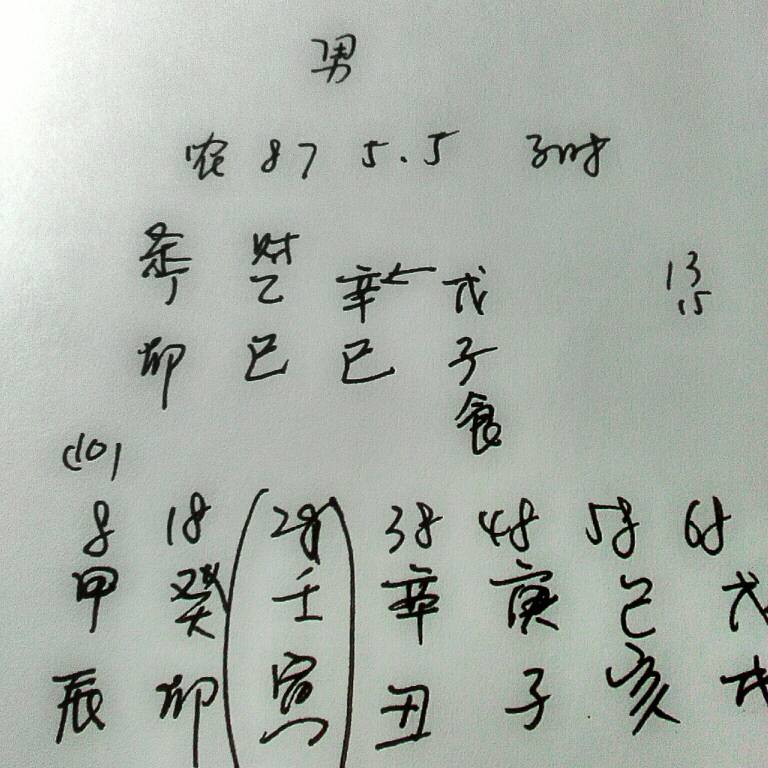 男
农 87 5.5 子时
杀 财
丁 乙 辛 ← 戊 13
15
卯 巳 巳 子
食
(10)
8 18 28 38 48 58 68
甲 癸 壬 辛 庚 己 戊
辰 卯 寅 丑 子 亥 戌